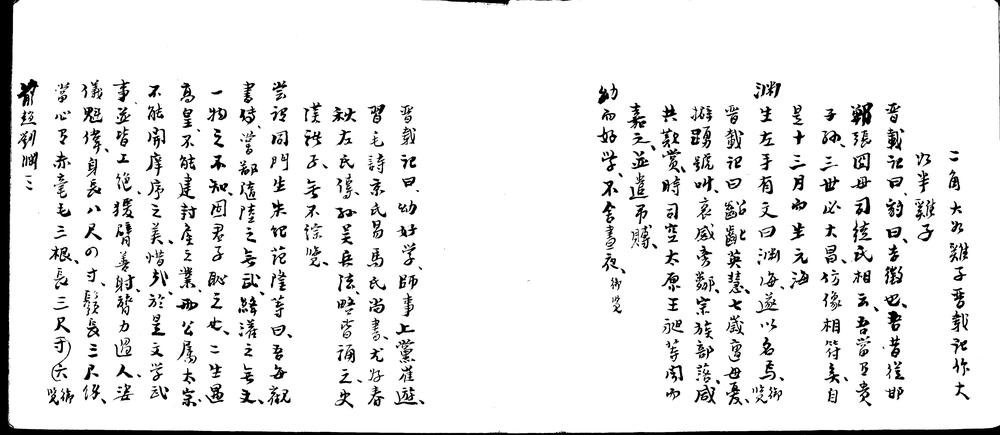 二角大如雞子晉載記作大
如半雞子
晉載記曰豹曰吉徵也吾昔從邯
鄲張冏母司徒氏相云吾當有貴
子孫三世必大昌仿像相符矣自
是十三月而生元海
淵生左手有文曰淵海遂以名焉御覽
晉載記曰齠齔英慧七歲遭母憂
擗踴號叫哀感旁鄰宗族部落咸
共歎賞時司空太原王昶等聞而
嘉之並遣弔賻
幼而好學不舍晝夜御覽
晉載記曰幼好學師事上黨崔遊
習毛詩京氏易馬氏尚書尤好春
秋左氏傳孫吳兵法略皆誦之史
漢諸子無不綜覽
嘗謂同門生朱紀范隆等曰吾每觀
書傳嘗鄙隨陸之無武絳灌之無文
一物之不知固君子恥之也二生遇
高皇不能建封侯之業兩公屬太宗
不能開庠序之美惜哉於是文學武
事並皆工絕猨臂善射膂力過人姿
儀魁偉身長八尺四寸鬚長三尺餘
當心有赤毫毛三根長三尺寸六御覽
前趙劉淵三